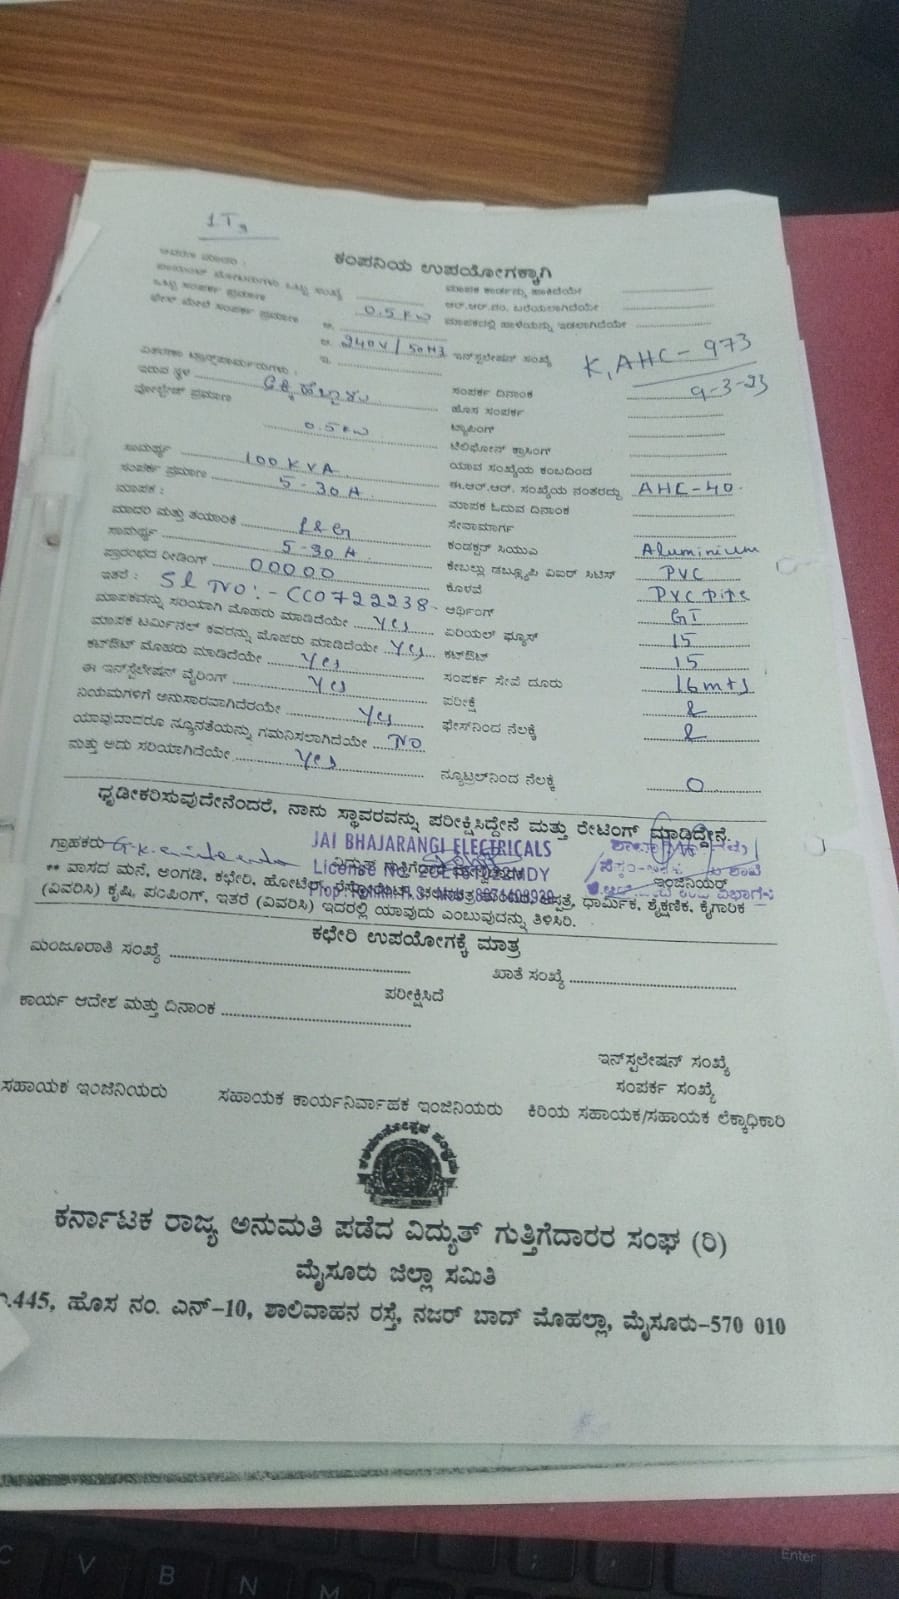 1T
ಕಂಪನಿಯ ಉಪಯೋಗಕ್ಕಾಗಿ
ಒಟ್ಟು ಸಂಪರ್ಕ ಪ್ರಮಾಣ 0.5 KW
ಆರ್.ಆರ್.ನಂ. ಬರೆಯಲಾಗಿದೆಯೇ
240V / 50HZ
ಇನ್‌ಸ್ಟಲೇಷನ್ ಸಂಖ್ಯೆ K, AHC-973
ಇರುವ ಸ್ಥಳ
ಸಂಪರ್ಕ ದಿನಾಂಕ 9-3-23
ವೋಲ್ಟೇಜ್ ಪ್ರಮಾಣ
ಹೊಸ ಸಂಪರ್ಕ
0.5 KW
ಟ್ಯಾಪಿಂಗ್
ಟೆಲಿಫೋನ್ ಕ್ರಾಸಿಂಗ್
ಸಾಮರ್ಥ್ಯ 100 KVA
ಯಾವ ಸಂಖ್ಯೆಯ ಕಂಬದಿಂದ
ಸಂಪರ್ಕ ಪ್ರಮಾಣ 5-30A
ಈ.ಆರ್.ಆರ್. ಸಂಖ್ಯೆಯ ನಂತರದ್ದು AHC-40.
ಮಾಪಕ :
ಮಾಪಕ ಓದುವ ದಿನಾಂಕ
ಮಾದರಿ ಮತ್ತು ತಯಾರಿಕೆ L&G
ಸೇವಾಮಾರ್ಗ
ಸಾಮರ್ಥ್ಯ 5-30A
ಕಂಡಕ್ಟರ್ ಸಿಯುಎ Aluminium
ಪ್ರಾರಂಭದ ರೀಡಿಂಗ್ 00000
ಕೇಬಲ್ಲು ಡಬ್ಲ್ಯೂಪಿ ವಿಐಆರ್ ಸಿಟಿಸ್ PVC
ಇತರೆ : Sl No:- CC0722238-
ಕೊಳವೆ PVC Pipe
ಮಾಪಕವನ್ನು ಸರಿಯಾಗಿ ಮೊಹರು ಮಾಡಿದೆಯೇ Yes
ಅರ್ಥಿಂಗ್ GI
ಮಾಪಕ ಟರ್ಮಿನಲ್ ಕವರನ್ನು ಮೊಹರು ಮಾಡಿದೆಯೇ Yes
ಏರಿಯಲ್ ಫ್ಯೂಸ್ 15
ಕಟ್‌ಔಟ್ ಮೊಹರು ಮಾಡಿದೆಯೇ Yes
ಕಟ್‌ಔಟ್ 15
ಈ ಇನ್‌ಸ್ಟಲೇಷನ್ ವೈರಿಂಗ್ Yes
ಸಂಪರ್ಕ ಸೇವೆ ದೂರು 16mts
ನಿಯಮಗಳಿಗೆ ಅನುಸಾರವಾಗಿದೆರಯೇ Yes
ಪರೀಕ್ಷೆ
ಯಾವುದಾದರೂ ನ್ಯೂನತೆಯನ್ನು ಗಮನಿಸಲಾಗಿದೆಯೇ No
ಫೇಸ್‌ನಿಂದ ನೆಲಕ್ಕೆ
ಮತ್ತು ಅದು ಸರಿಯಾಗಿದೆಯೇ Yes
ನ್ಯೂಟ್ರಲ್‌ನಿಂದ ನೆಲಕ್ಕೆ 0
ಧೃಡೀಕರಿಸುವುದೇನೆಂದರೆ, ನಾನು ಸ್ಥಾವರವನ್ನು ಪರೀಕ್ಷಿಸಿದ್ದೇನೆ ಮತ್ತು ರೇಟಿಂಗ್ ಮಾಡಿದ್ದೇನೆ.
ಗ್ರಾಹಕರು
JAI BHAJARANGI ELECTRICALS
ಇಂಜಿನಿಯರ್
** ವಾಸದ ಮನೆ, ಅಂಗಡಿ, ಕಛೇರಿ, ಹೋಟೆಲ್, ಧಾರ್ಮಿಕ, ಶೈಕ್ಷಣಿಕ, ಕೈಗಾರಿಕೆ
(ವಿವರಿಸಿ) ಕೃಷಿ, ಪಂಪಿಂಗ್, ಇತರೆ (ವಿವರಿಸಿ) ಇದರಲ್ಲಿ ಯಾವುದು ಎಂಬುವುದನ್ನು ತಿಳಿಸಿರಿ.
ಕಛೇರಿ ಉಪಯೋಗಕ್ಕೆ ಮಾತ್ರ
ಮಂಜೂರಾತಿ ಸಂಖ್ಯೆ
ಖಾತೆ ಸಂಖ್ಯೆ
ಪರೀಕ್ಷಿಸಿದೆ
ಕಾರ್ಯ ಆದೇಶ ಮತ್ತು ದಿನಾಂಕ
ಇನ್‌ಸ್ಟಲೇಷನ್ ಸಂಖ್ಯೆ
ಸಂಪರ್ಕ ಸಂಖ್ಯೆ
ಸಹಾಯಕ ಇಂಜಿನಿಯರು ಸಹಾಯಕ ಕಾರ್ಯನಿರ್ವಾಹಕ ಇಂಜಿನಿಯರು ಕಿರಿಯ ಸಹಾಯಕ/ಸಹಾಯಕ ಲೆಕ್ಕಾಧಿಕಾರಿ
ಕರ್ನಾಟಕ ರಾಜ್ಯ ಅನುಮತಿ ಪಡೆದ ವಿದ್ಯುತ್ ಗುತ್ತಿಗೆದಾರರ ಸಂಘ (ರಿ)
ಮೈಸೂರು ಜಿಲ್ಲಾ ಸಮಿತಿ
.445, ಹೊಸ ನಂ. ಎನ್-10, ಶಾಲಿವಾಹನ ರಸ್ತೆ, ನಜರ್ ಬಾದ್ ಮೊಹಲ್ಲಾ, ಮೈಸೂರು-570 010
C V B N M ; : Enter